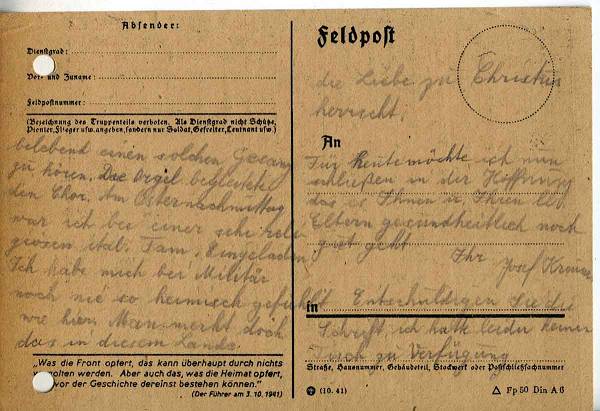 Absender:
Dienstgrad:
Vor- und Zuname:
Feldpostnummer:
(Bezeichnung des Truppenteils verboten. Als Dienstgrad nicht Schütze,
Pionier, Flieger usw. angeben, sondern nur Soldat, Gefreiter, Leutnant usw.)
belebend einen solchen Gesang
zu hören. Die Orgel begleitete
den Chor. Am Osternachmittag
war ich bei einer sehr
grossen ital. Fam. Eingeladen
Ich habe mich bei Militär
noch nie so heimisch gefühlt
wie hier. Man merkt doch
das in diesem Lande
„Was die Front opfert, das kann überhaupt durch nichts
vergolten werden. Aber auch das, was die Heimat opfert,
vor der Geschichte dereinst bestehen können.“
(Der Führer am 3. 10. 1941)
Feldpost
die Liebe zu Christus
herrscht.
An
Für heute möchte ich nun
schließen in der Hoffnung
das es Ihnen u. Ihren lb.
Eltern gesundheitlich noch
gut geht
Ihr Josef
in
Entschuldigen Sie die
Schrift ich hatte leider keinen
Tisch zu Verfügung
Straße, Hausnummer, Gebäudeteil, Stockwerk oder Postschließfachnummer
(10. 41)
Fp 50 Din A 6